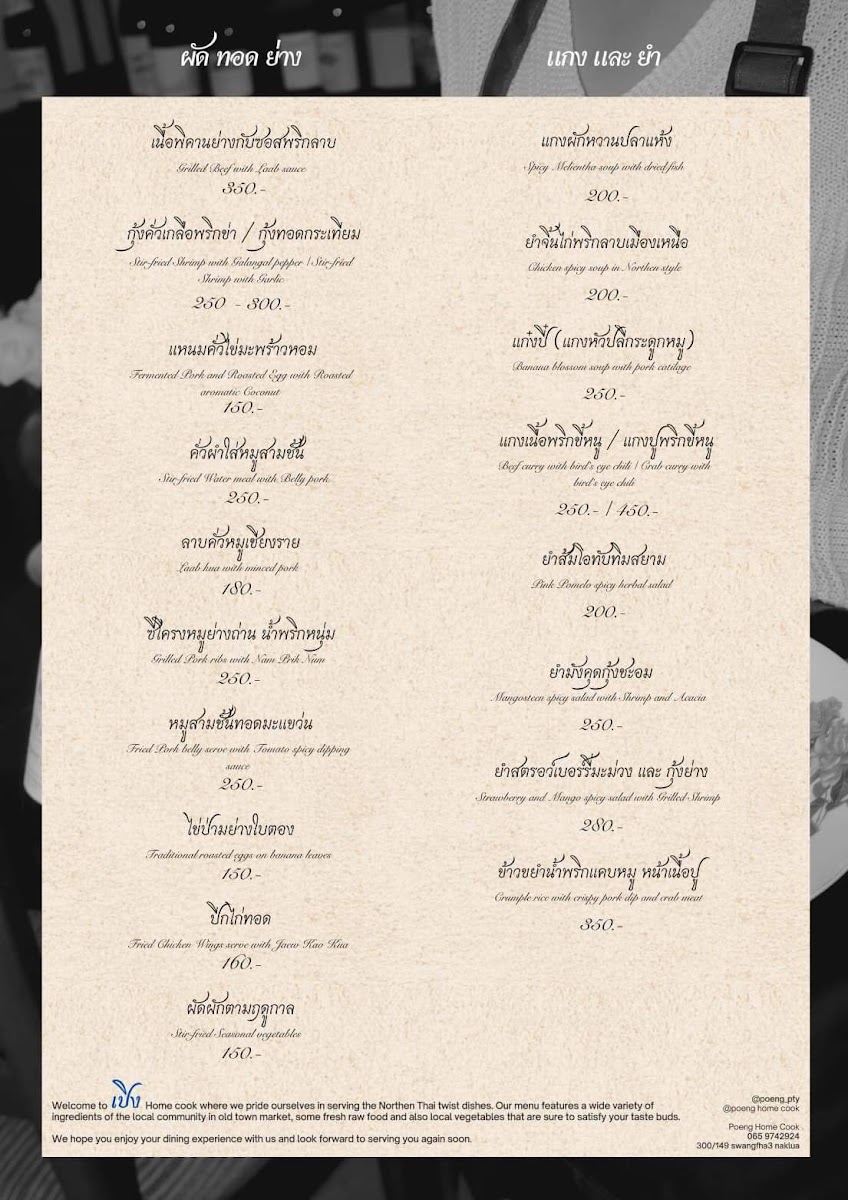 ผัด ทอด ย่าง
เนื้อพิคานย่างกับซอสพริกลาบ
Grilled Beef with Laab sauce
350.-
กุ้งคั่วเกลือพริกข่า / กุ้งทอดกระเทียม
Stir-fried Shrimp with Galangal pepper | Stir-fried
Shrimp with Garlic
250 - 300.-
แหนมคั่วไข่มะพร้าวหอม
Fermented Pork and Roasted Egg with Roasted
aromatic Coconut
150.-
คั่วผำใส่หมูสามชั้น
Stir-fried Water meal with Belly pork
250.-
ลาบคั่วหมูเชียงราย
Laab kua with minced pork
180.-
ซี่โครงหมูย่างถ่าน น้ำพริกหนุ่ม
Grilled Pork ribs with Nam Prik Num
250.-
หมูสามชั้นทอดมะแขว่น
Fried Pork belly serve with Tomato spicy dipping
sauce
250.-
ไข่ป่ามย่างใบตอง
Traditional roasted eggs on banana leaves
150.-
ปีกไก่ทอด
Fried Chicken Wings serve with Jaew Kao Kua
160.-
ผัดผักตามฤดูกาล
Stir-fried Seasonal vegetables
150.-
แกง และ ยำ
แกงผักหวานปลาแห้ง
Spicy Melientha soup with dried fish
200.-
ยำจิ้นไก่พริกลาบเมืองเหนือ
Chicken spicy soup in Northen style
200.-
แก๋งปี๋ (แกงหัวปลีกระดูกหมู)
Banana blossom soup with pork catilage
250.-
แกงเนื้อพริกขี้หนู / แกงปูพริกขี้หนู
Beef curry with bird's eye chili | Crab curry with
bird's eye chili
250.- | 450.-
ยำส้มโอทับทิมสยาม
Pink Pomelo spicy herbal salad
200.-
ยำมังคุดกุ้งชะอม
Mangosteen spicy salad with Shrimp and Acacia
250.-
ยำสตรอว์เบอร์รี่มะม่วง และ กุ้งย่าง
Strawberry and Mango spicy salad with Grilled Shrimp
280.-
ข้าวขยำน้ำพริกแคบหมู หน้าเนื้อปู
Crumple rice with crispy pork dip and crab meat
350.-
Welcome to เปิง Home cook where we pride ourselves in serving the Northen Thai twist dishes. Our menu features a wide variety of
ingredients of the local community in old town market, some fresh raw food and also local vegetables that are sure to satisfy your taste buds.
We hope you enjoy your dining experience with us and look forward to serving you again soon.
@poeng_pty
@poeng home cook
Poeng Home Cook
065 9742924
300/149 swangfha3 naklua